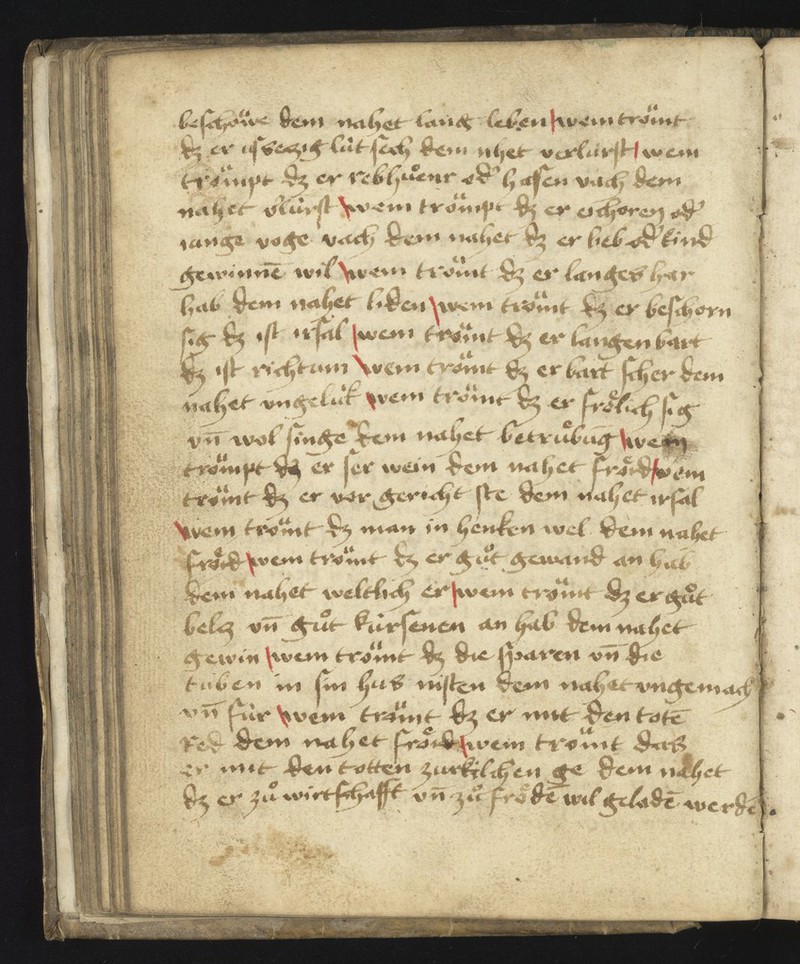 beschöwe dem nahet lang leben wem trömt
dz er ussetzig lüt sech dem nhet verlurst wem
trömpt dz er rebhuͦenr od hasen vach dem
nahet vlurst wem trömpt dz er eichoren od
iunge voge vach dem nahet dz er lieb od kind
gewinnē wil wem trömt dz er langes har
hab dem nahet liden wem trömt dz er beschorn
sig dz ist irsal wem trömt dz er langen bart
dz ist richtum wem trömt dz er bart scher dem
nahet ungelük wem trömt dz er frölich sig
vn̄ wol singe dem nahet betruͦbug wem
trömpt dz er ser wein dem nahet fröid wem
trömt dz er vor gericht ste dem nahet irsal
wem trömt dz man in henken wel dem nahet
fröid wem trömt dz er guͦt gewand an hab
dem nahet weltlich er wem trömt dz er guͦt
belz vn̄ guͦt kürsenen an hab dem nahet
gewin wem trömt dz die sparen vn̄ die
tuben in sin hus nisten dem nahet ungemach
vn̄ für wem trömt dz er mit den totē
red dem nahet fröid wem trömt das
er mit den totten zurkilchen ge dem nahet
dz er zuͦ wirtschafft vn̄ zuͦ frödē wil geladē werdē